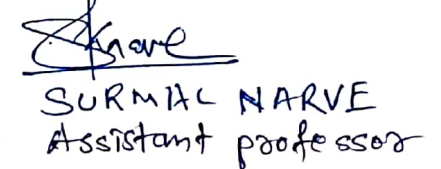 SURMAL NARVE
Assistant professor